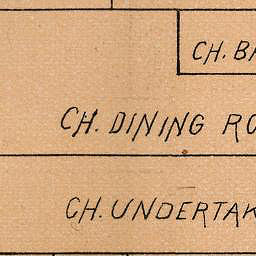 CH. BA
CH. DINING RO
CH. UNDERTAK